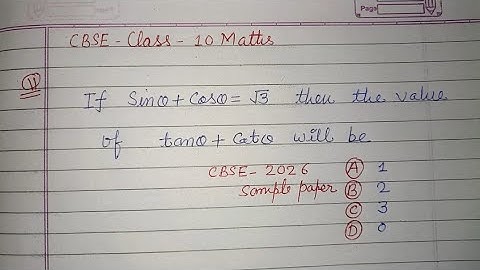 Page
CBSE - Class - 10 Maths
1)
If Sinθ + Cosθ = √3 then the value
of tanθ + Catθ will be
CBSE - 2026 (A) 1
Sample paper (B) 2
(C) 3
(D) 0